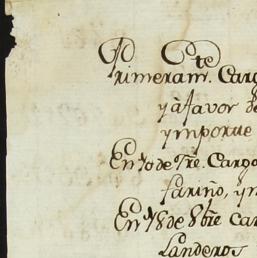 Primeramte. Carg
y â favor de
ymporue
En 10 de Tre. Cargo
fariño, ym
En 18 de 8bre Car
Landeros